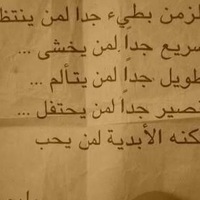 لزمن بطيء جدا لمن ينتظ
سريع جداً لمن يخشى ...
طويل جداً لمن يتألم ...
قصير جداً لمن يحتفل ...
كنه الأبدية لمن يحب